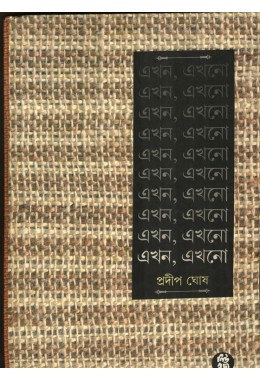 এখন, এখনো
এখন, এখনো
এখন, এখনো
এখন, এখনো
এখন, এখনো
এখন, এখনো
এখন, এখনো
এখন, এখনো
এখন, এখনো
এখন, এখনো
প্রদীপ ঘোষ